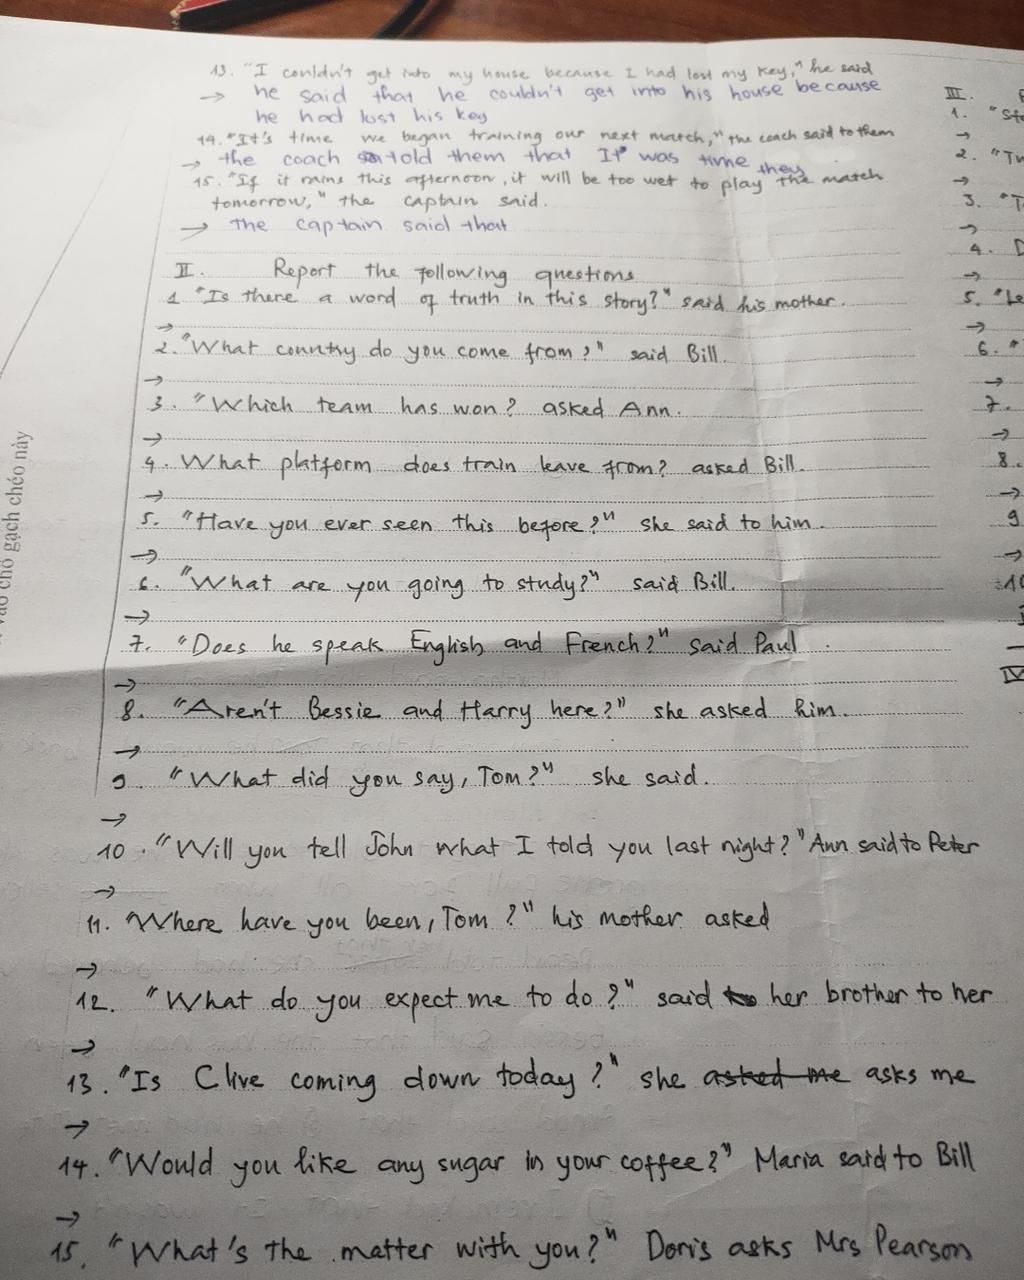 13. "I couldn't get into my house because I had lost my key," he said
→ he said that he couldn't get into his house because
he had lost his key
14. "It's time we began training our next match," the coach said to them
→ the coach told them that It was time they
15. "If it rains this afternoon, it will be too wet to play the match
tomorrow," the captain said.
→ the captain said that
II. Report the following questions
1 "Is there a word of truth in this story?" said his mother.
→
2. "What country do you come from?" said Bill.
→
3. "Which team has won? asked Ann.
→
4. What platform does train leave from? asked Bill.
→
5. "Have you ever seen this before?" she said to him.
→
6. "What are you going to study?" said Bill.
→
7. "Does he speak English and French?" said Paul.
→
8. "Aren't Bessie and Harry here?" she asked him.
→
9. "What did you say, Tom?" she said.
→
10. "Will you tell John what I told you last night?" Ann said to Peter
→
11. "Where have you been, Tom?" his mother asked
→
12. "What do you expect me to do?" said her brother to her
→
13. "Is Clive coming down today?" she asked me asks me
→
14. "Would you like any sugar in your coffee?" Maria said to Bill
→
15. "What's the matter with you?" Doris asks Mrs Pearson
III.
1. "Ste
→
2. "Tu
→
3. "T
→
4. D
→
5. "Le
→
6. "
→
7.
→
8.
→
9
→
10
IV
vào chỗ gạch chéo này